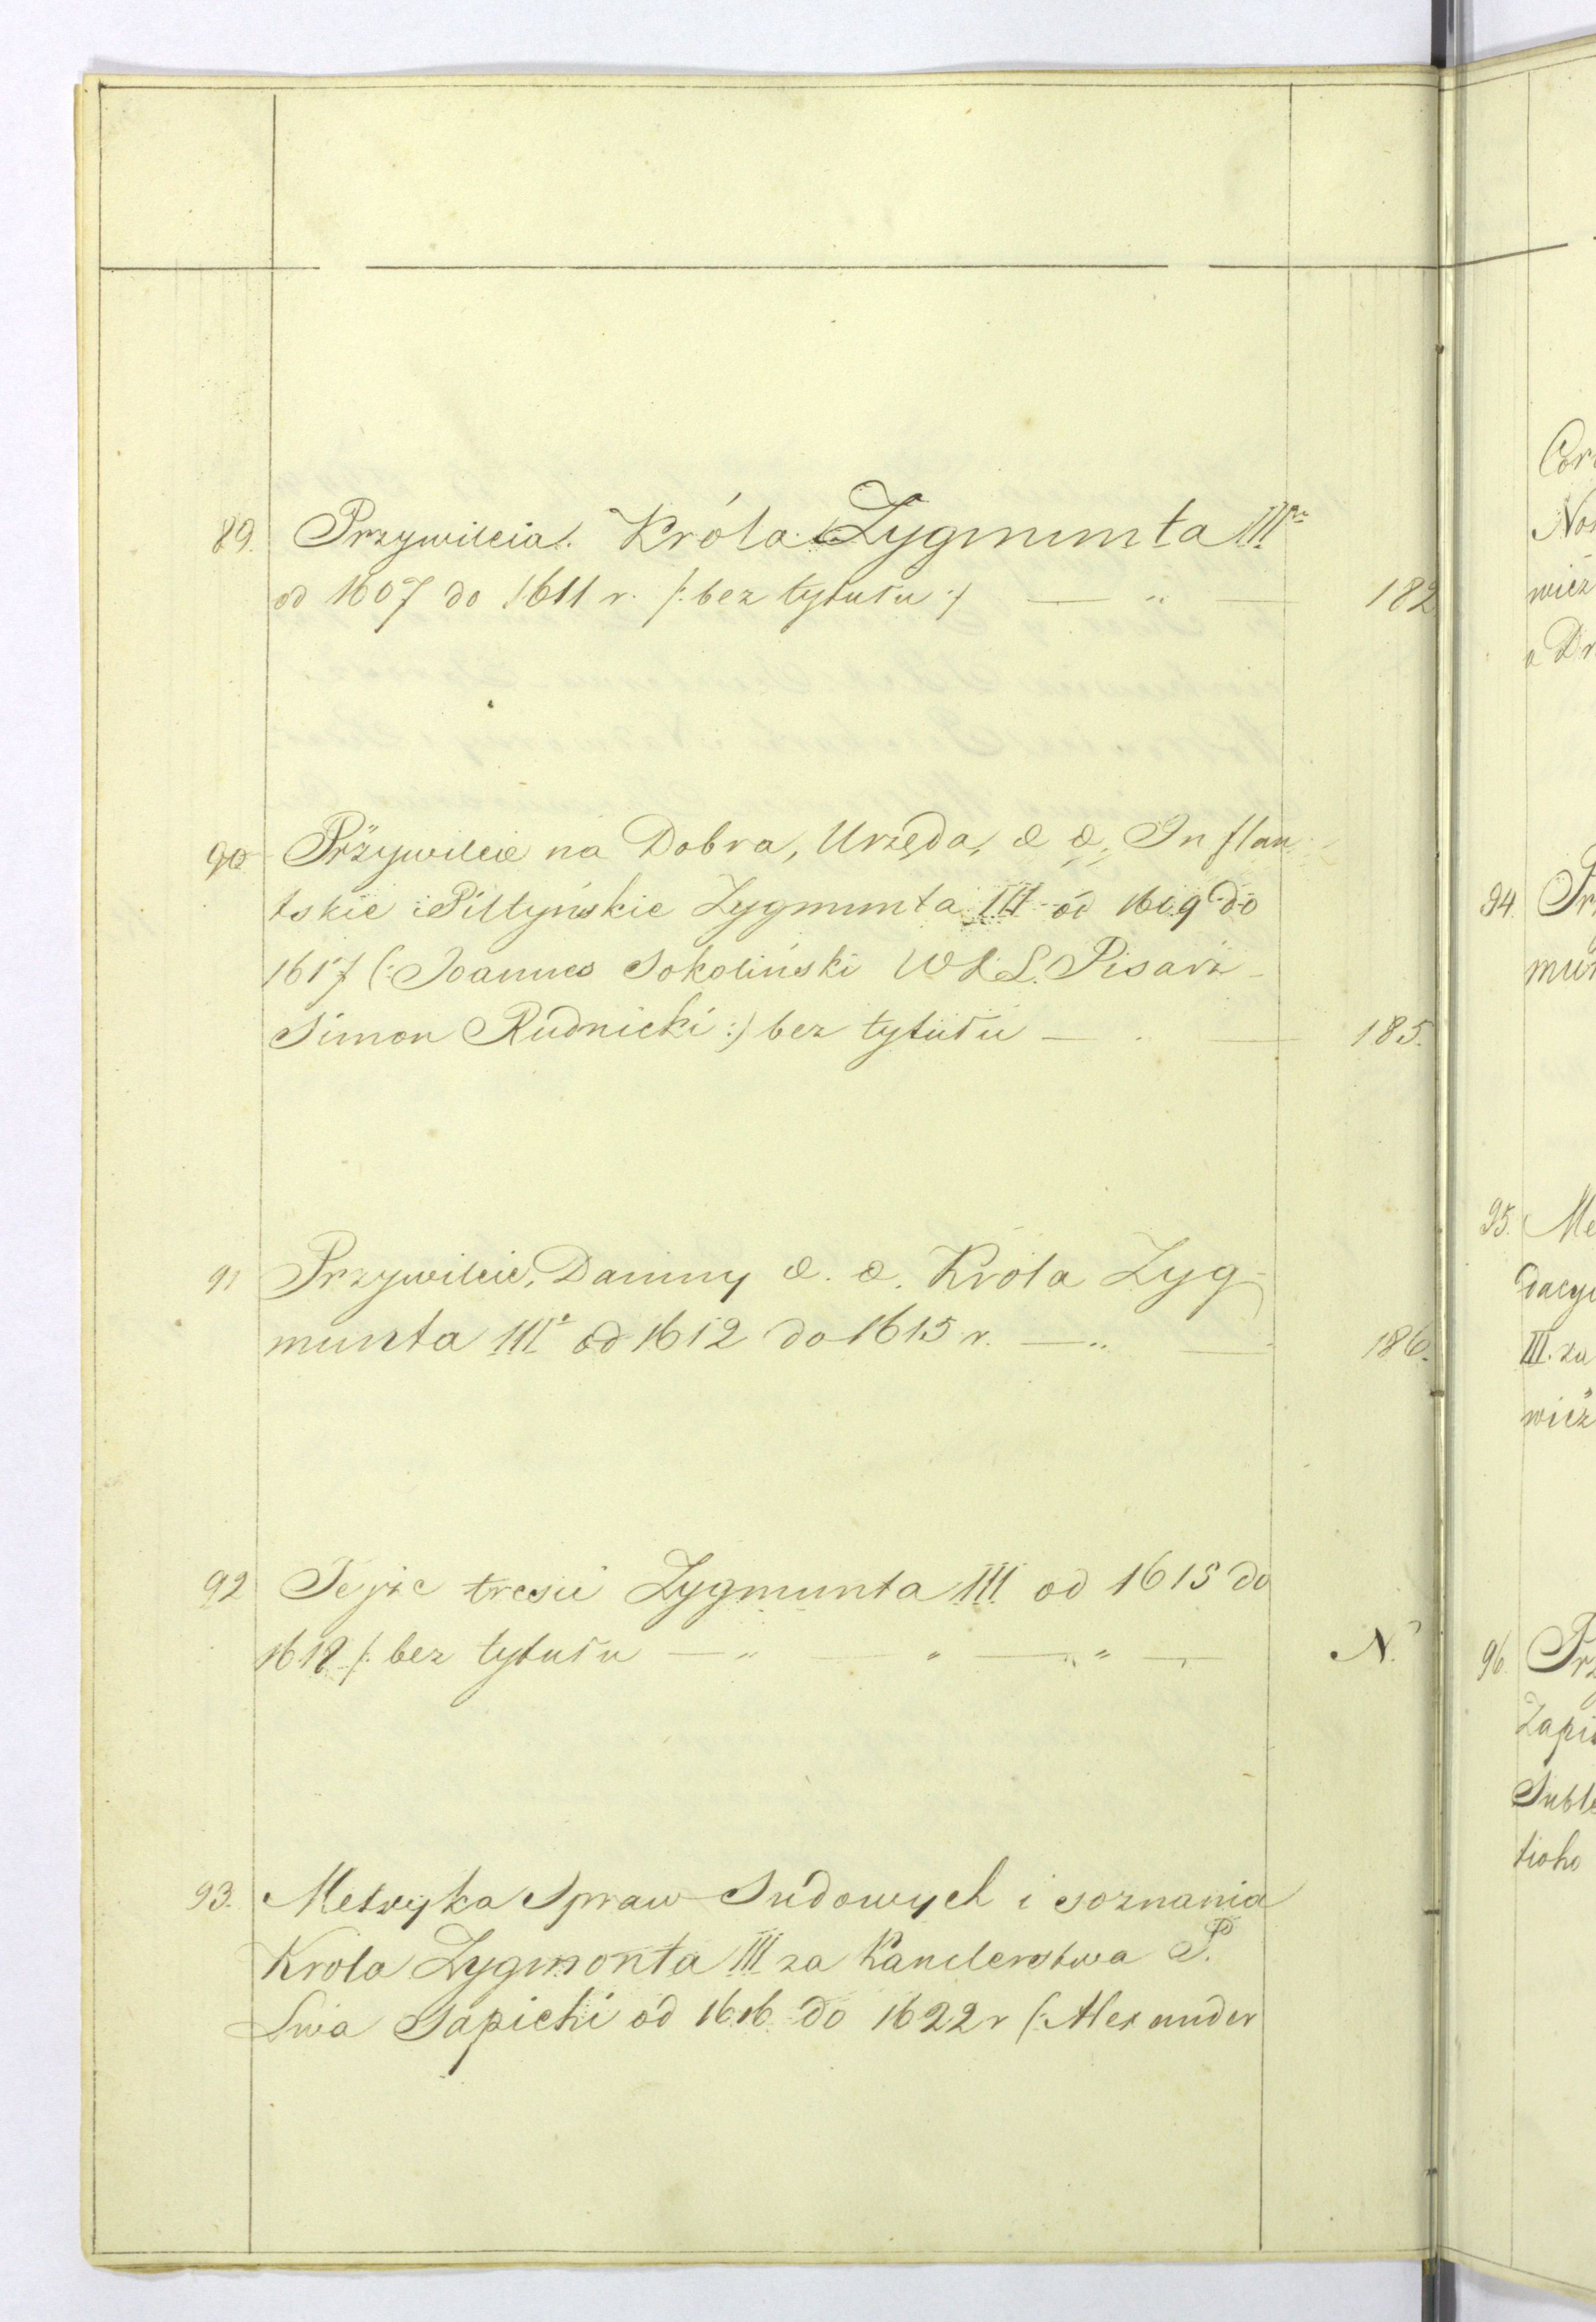 89. Przywileia. Króla Zygmunta III
od 1607 do 1611 r. /: bez tytułu :/ — „ — 182
90 Przywileie na Dobra, Urzęda, & &. Inflan-
tskie i Piltyńskie Zygmunta III od 1609 do
1617 (: Joannes Sokoliński W. X. L. Pisarz
Simon Rudnicki :) bez tytułu — „ — 185.
91 Przywileie, Daniny &. &. Króla Zyg-
munta III od 1612 do 1615 r. — „ — 186.
92 Tejże treści Zygmunta III od 1615 do
1618 /: bez tytułu — „ — „ — „ — N.
93. Metryka Spraw Sudowych i soznania
Krola Zygmonta III za Kanclerstwa P.
Lwa Sapiehi od 1616 do 1622 r (: Alexander
94.
95. Me
III. za
96